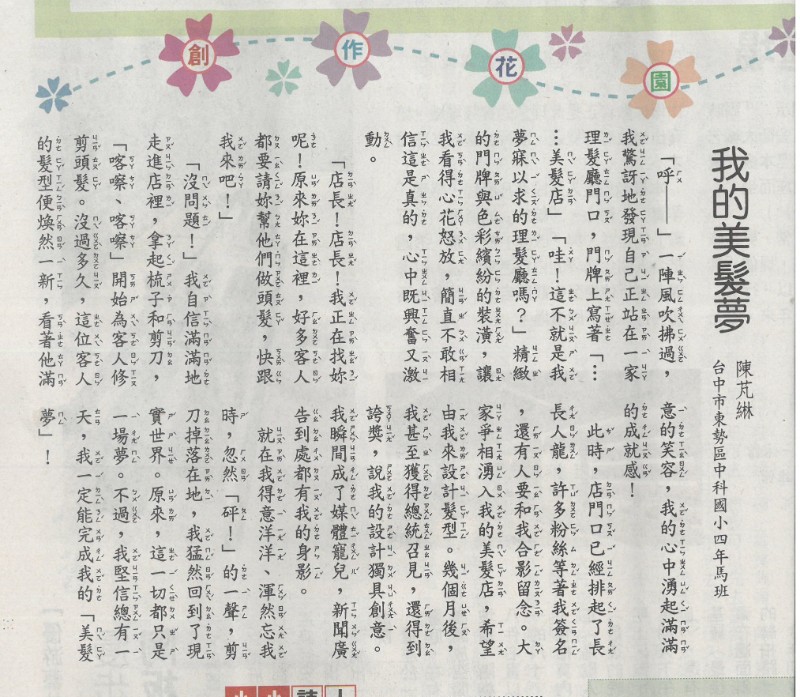 創作花園
我的美髮夢
陳芃綝
台中市東勢區中科國小四年馬班
「呼——」一陣風吹拂過，
我驚訝地發現自己正站在一家
理髮廳門口，門牌上寫著「…
…美髮店」「哇！這不就是我
夢寐以求的理髮廳嗎？」精緻
的門牌與色彩繽紛的裝潢，讓
我看得心花怒放，簡直不敢相
信這是真的，心中既興奮又激
動。
「店長！店長！我正在找妳
呢！原來妳在這裡，好多客人
都要請妳幫他們做頭髮，快跟
我來吧！」
「沒問題！」我自信滿滿地
走進店裡，拿起梳子和剪刀，
「喀嚓、喀嚓」開始為客人修
剪頭髮。沒過多久，這位客人
的髮型便煥然一新，看著他滿
意的笑容，我的心中湧起滿滿
的成就感！
此時，店門口已經排起了長
長人龍，許多粉絲等著我簽名
，還有人要和我合影留念。大
家爭相湧入我的美髮店，希望
由我來設計髮型。幾個月後，
我甚至獲得總統召見，還得到
誇獎，說我的設計獨具創意。
我瞬間成了媒體寵兒，新聞廣
告到處都有我的身影。
就在我得意洋洋、渾然忘我
時，忽然「砰！」的一聲，剪
刀掉落在地，我猛然回到了現
實世界。原來，這一切都只是
一場夢。不過，我堅信總有一
天，我一定能完成我的「美髮
夢」！